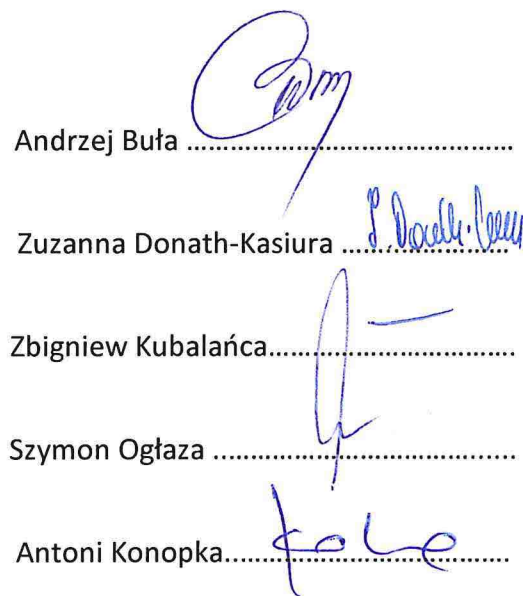 Andrzej Buła ................................................
Zuzanna Donath-Kasiura ........................
Zbigniew Kubalańca....................................
Szymon Ogłaza ............................................
Antoni Konopka..........................................